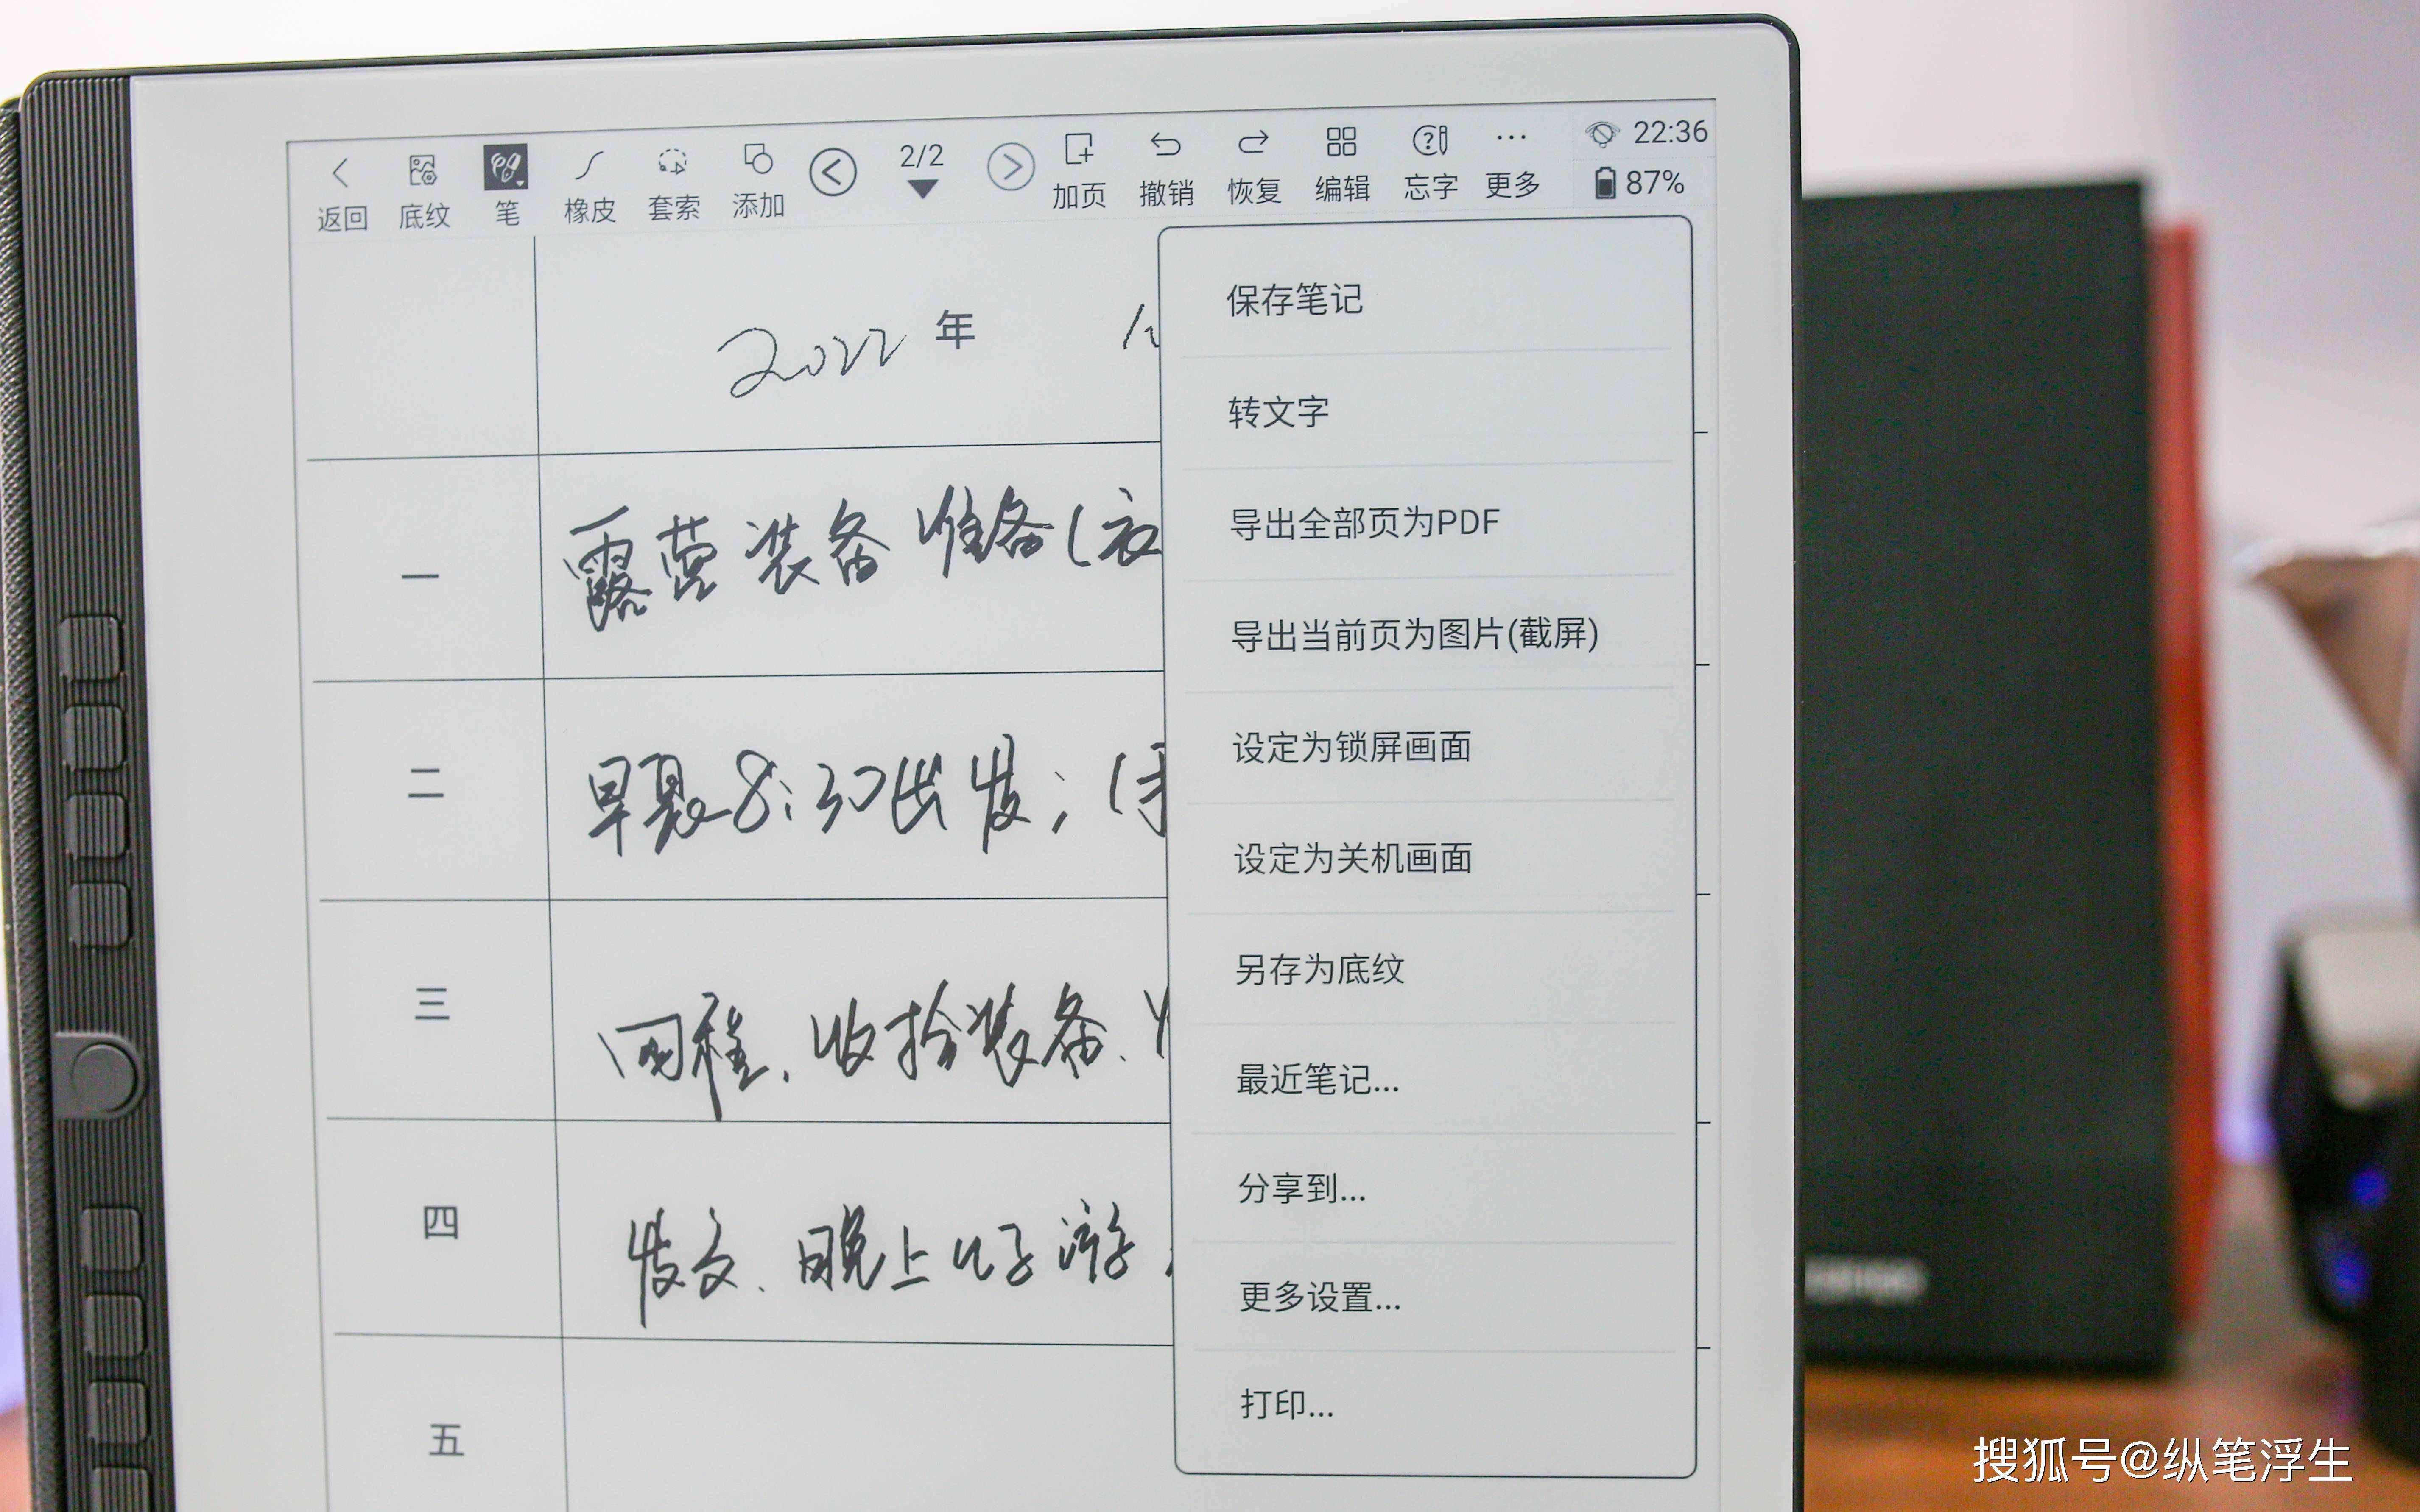 返回 底纹 笔 橡皮 套索 添加 2/2 加页 撤销 恢复 编辑 忘字 更多 22:36
87%
2022 年
一 露营装备准备(衣
二 早晨8:30出发;(
三 回程、收拾装备、
四 发文、晚上好游
五
保存笔记
转文字
导出全部页为PDF
导出当前页为图片(截屏)
设定为锁屏画面
设定为关机画面
另存为底纹
最近笔记...
分享到...
更多设置...
打印...
搜狐号@纵笔浮生